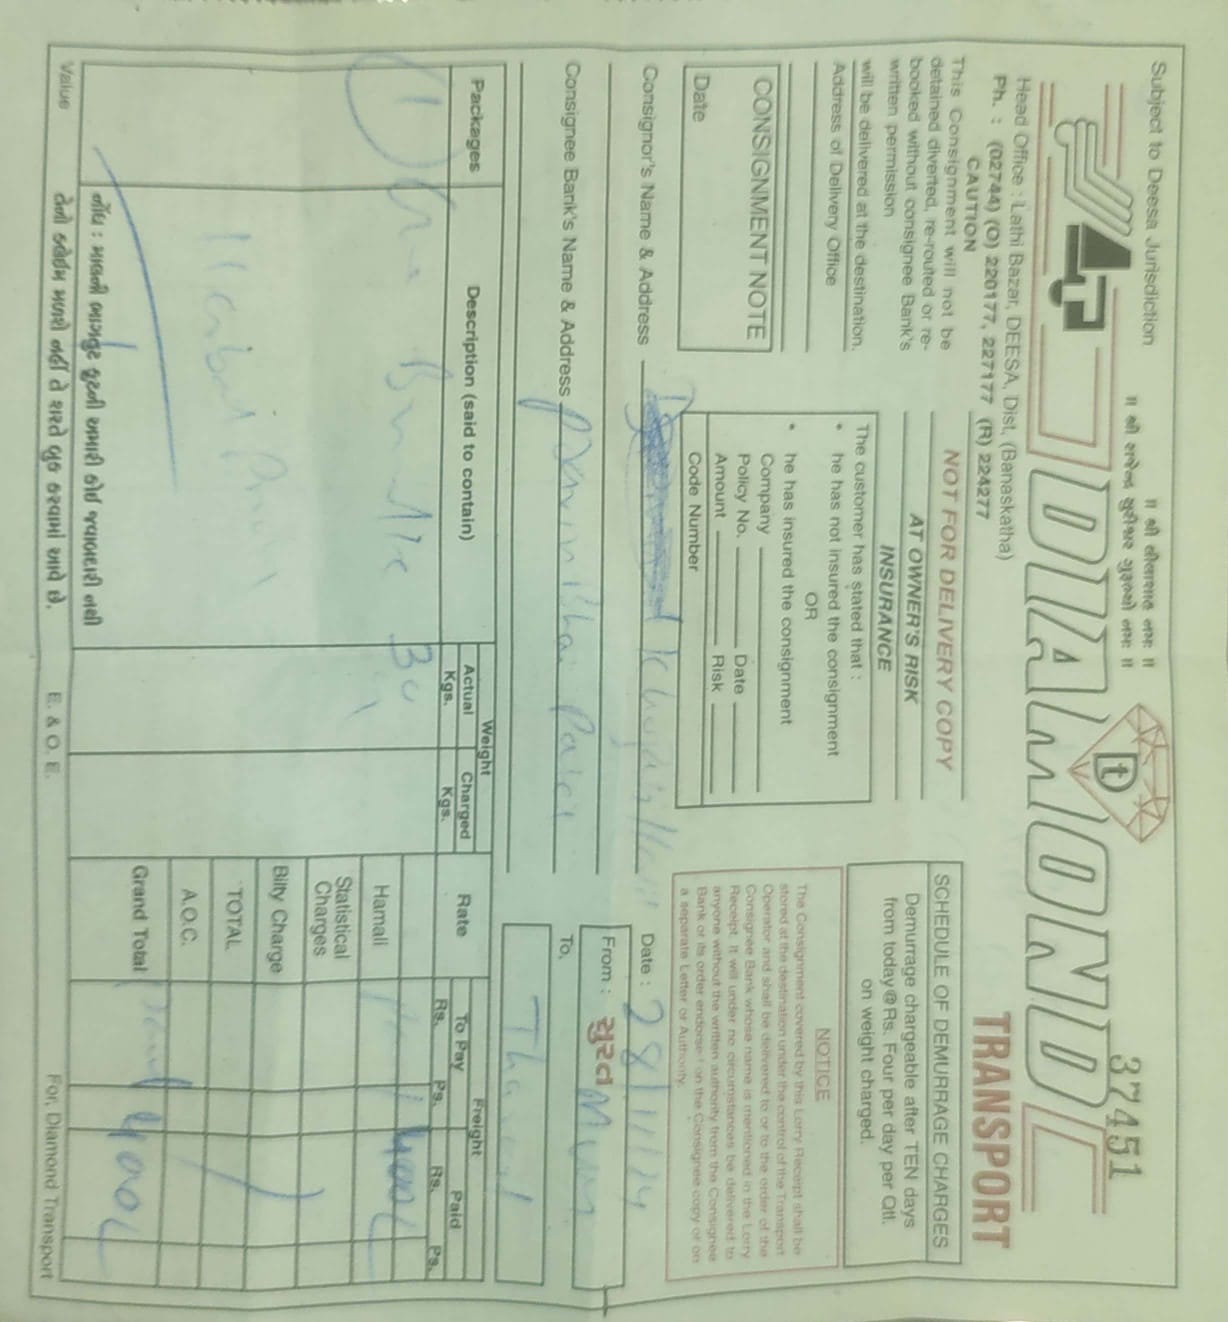 Subject to Deesa Jurisdiction
॥ શ્રી લીલાશાહ નમઃ ॥
॥ શ્રી રાજેન્દ્ર સુરીશ્વર ગુરૂભ્યો નમઃ ॥
37451
DT DIAMOND
TRANSPORT
Head Office : Lathi Bazar, DEESA, Dist. (Banaskatha)
Ph. : (02744) (O) 220177, 227177 (R) 224277
CAUTION
This Consignment will not be
detained diverted, re-routed or re-
booked without consignee Bank's
written permission
will be delivered at the destination.
Address of Delivery Office
CONSIGNMENT NOTE
Date
NOT FOR DELIVERY COPY
AT OWNER'S RISK
INSURANCE
The customer has stated that :
• he has not insured the consignment
OR
• he has insured the consignment
Company
Policy No. Date
Amount Risk
Code Number
SCHEDULE OF DEMURRAGE CHARGES
Demurrage chargeable after TEN days
from today@Rs. Four per day per Qtl.
on weight charged.
NOTICE
The Consignment covered by this Lorry Receipt shall be
stored at the destination under the control of the Transport
Operator and shall be delivered to or to the order of the
Consignee Bank whose name is mentioned in the Lorry
Receipt. It will under no circumstances be delivered to
anyone without the written authority from the Consignee
Bank or its order endorsed on the Consignee copy or on
a separate Letter or Authority.
Consignor's Name & Address
Date : 28/11/24
From : સુરત
Consignee Bank's Name & Address
To,
Packages
Description (said to contain)
Weight
Actual Kgs.
Charged Kgs.
Rate
Freight
To Pay
Rs. Ps.
Paid
Rs. Ps.
Hamali
Statistical Charges
Bilty Charge
TOTAL
A.O.C.
Grand Total
નોંધ : માલની ભાગતુટ ફુટની અમારી કોઈ જવાબદારી નથી
Value
તેનો કલેઈમ મળશે નહીં તે શરતે બુક કરવામાં આવે છે.
E. & O. E.
For, Diamond Transport